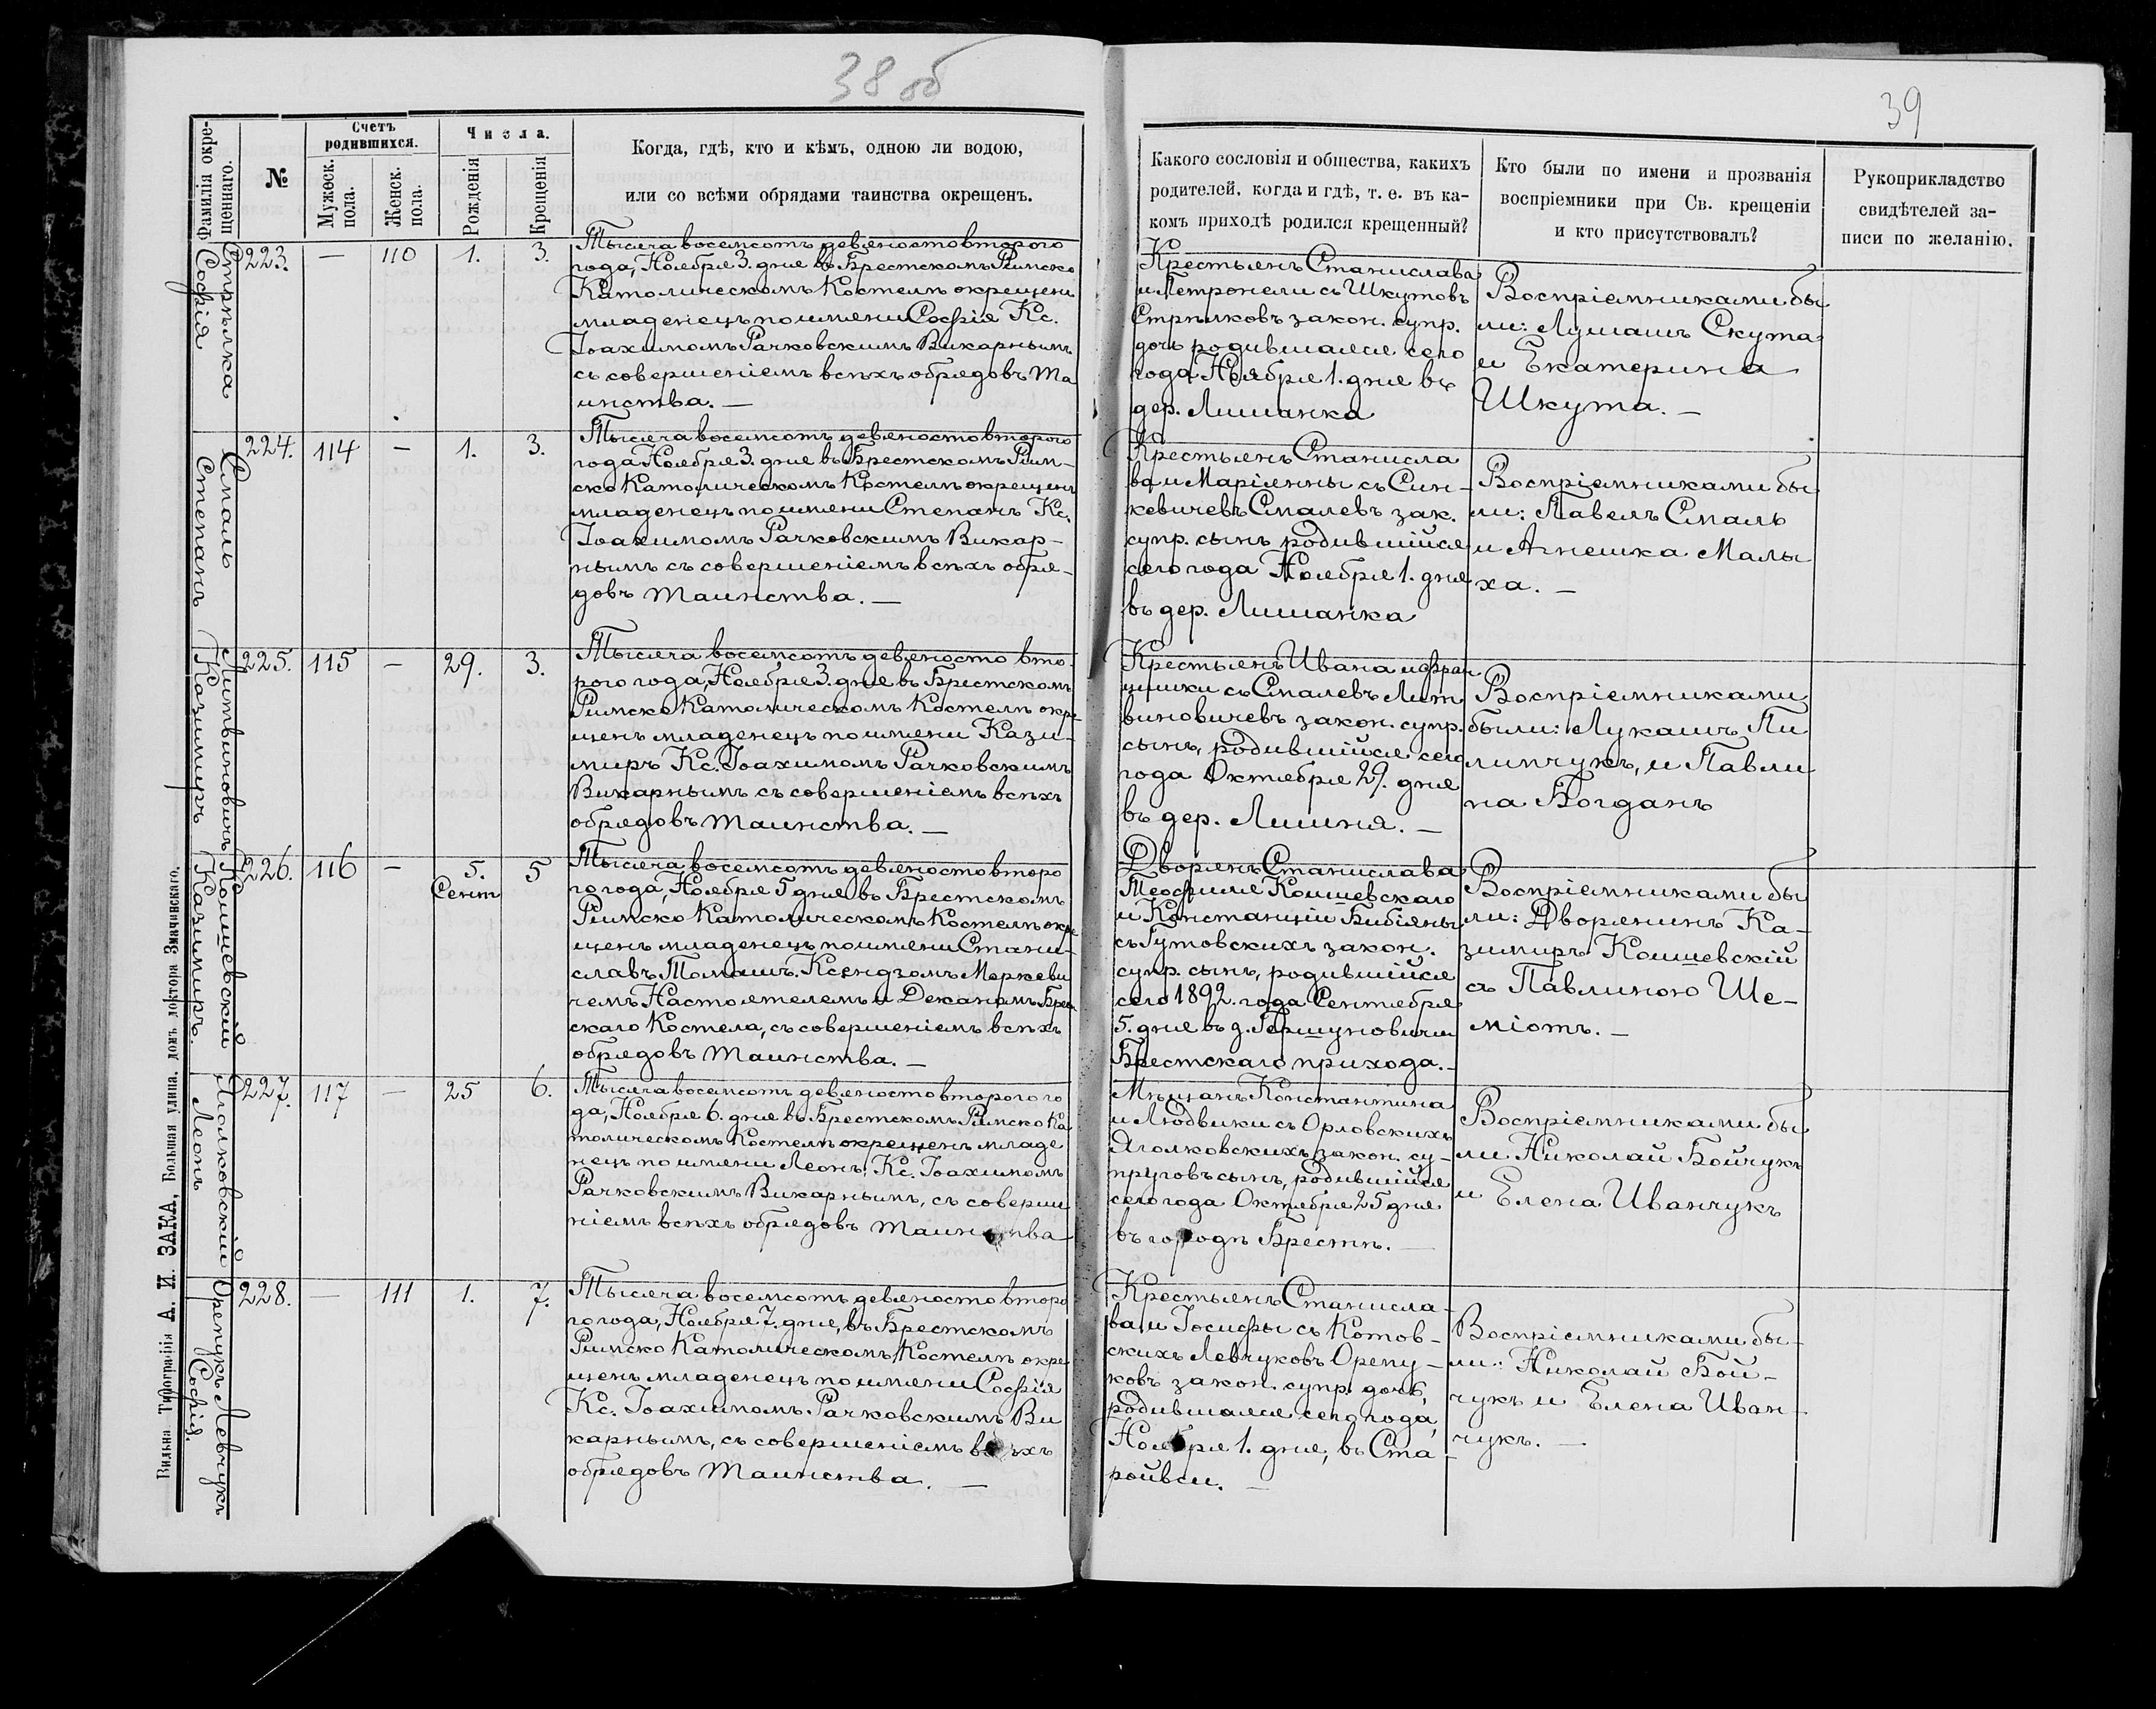 38 об
39
Фамилія окре-
щеннаго.
№
Счетъ
родившихся.
Мужеск.
пола.
Женск.
пола.
Числа.
Рожденія
Крещенія
Когда, гдѣ, кто и кѣмъ, одною ли водою,
или со всѣми обрядами таинства окрещенъ.
Какого сословія и общества, какихъ
родителей, когда и гдѣ, т. е. въ ка-
комъ приходѣ родился крещенный?
Кто были по имени и прозванія
воспріемники при Св. крещеніи
и кто присутствовалъ?
Рукоприкладство
свидѣтелей за-
писи по желанію.
Стрѣлка
Софія
223. — 110 1. 3.
Тысяча восемсотъ девяносто второго
года, Ноября 3. дня въ Брестскомъ Римско
Католическомъ Костелѣ окрещенъ
младенецъ по имени Софія Кс.
Іоахимомъ Рачковскимъ Викарнымъ
съ совершеніемъ всѣхъ обрядовъ Та
инства. —
Крестьянъ Станислава
и Петронели съ Шкутовъ
Стрѣлковъ закон. супр.
дочь родившаяся сего
года Ноября 1. дня въ
дер. Лишанка
Воспріемниками бы
ли: Лукашъ Скута
и Екатерина
Шкута. —
Смаль
Степанъ
224. 114 — 1. 3.
Тысяча восемсотъ девяносто второго
года Ноября 3. дня въ Брестскомъ Рим-
ско Католическомъ Костелѣ окрещенъ
младенецъ по имени Степанъ Кс.
Іоахимомъ Рачковскимъ Викар-
нымъ съ совершеніемъ всѣхъ обря-
довъ Таинства. —
Крестьянъ Станисла
ва и Маріянны съ Син-
кевичевъ Смалевъ зак.
супр. сынъ родившійся
сего года Ноября 1. дня
въ дер. Лишанка
Воспріемниками бы
ли: Павелъ Смаль
и Агнешка Малы
ха. —
Литвиновичъ
Казимиръ
225. 115 — 29. 3.
Тысяча восемсотъ девяносто вто-
рого года, Ноября 3. дня въ Брестскомъ
Римско Католическомъ Костелѣ окре-
щенъ младенецъ по имени Кази-
миръ Кс. Іоахимомъ Рачковскимъ
Викарнымъ съ совершеніемъ всѣхъ
обрядовъ Таинства. —
Крестьянъ Ивана и Фран
цишки съ Смалевъ Лит
виновичевъ закон. супр.
сынъ, родившійся сего
года Октября 29. дня
въ дер. Лишня. —
Воспріемниками
были: Лукашъ Пи
липчукъ, и Павли
на Богданъ
Кошшевскій
Казимиръ.
226. 116 — 5. 5
Сент
Тысяча восемсотъ девяносто второ
го года, Ноября 5 дня въ Брестскомъ
Римско Католическомъ Костелѣ окре
щенъ младенецъ по имени Стани-
славъ Томашъ. Ксендзомъ Меркеви
чемъ Настоятелемъ и Деканомъ Брест
скаго Костела, съ совершеніемъ всѣхъ
обрядовъ Таинства. —
Дворянъ Станислава
Теофиля Кошшевскаго
и Констанціи Бибіяны
съ Гутовскихъ закон.
супр. сынъ, родившійся
сего 1892. года Сентября
5. дня въ д. Гершуновичи
Брестскаго прихода. —
Воспріемниками бы
ли: Дворянинъ Ка-
зимиръ Кошшевскій
съ Павлиною Ше-
міотъ. —
Яголковскій
Леонъ
227. 117 — 25 6.
Тысяча восемсотъ девяносто второго го
да, Ноября 6. дня въ Брестскомъ Римско Ка
толическомъ Костелѣ окрещенъ младе
нецъ по имени Леонъ. Кс. Іоахимомъ
Рачковскимъ Викарнымъ, съ соверше
ніемъ всѣхъ обрядовъ Таинства
Мѣщанъ Константина
и Людвики съ Орловскихъ
Яголковскихъ закон. су-
пруговъ сынъ, родившійся
сего года Октября 25 дня
въ городѣ Брестѣ. —
Воспріемниками бы
ли Николай Бойчукъ
и Елена Иванчукъ
Орепукъ Левчукъ
Софія.
228. — 111 1. 7.
Тысяча восемсотъ девяносто второ
го года, Ноября 7. дня, въ Брестскомъ
Римско Католическомъ Костелѣ окре
щенъ младенецъ по имени Софія
Кс. Іоахимомъ Рачковскимъ Ви
карнымъ, съ совершеніемъ всѣхъ
обрядовъ Таинства. —
Крестьянъ Станисла-
ва и Іосифы съ Котов-
скихъ Левчуковъ Орепу-
ковъ закон. супр. дочь,
родившаяся сего года,
Ноября 1. дня, въ Ста-
ройвси. —
Воспріемниками бы-
ли: Николай Бой-
чукъ и Елена Иван-
чукъ. —
Вильна Типографія А. И. ЗАКА, Большая улица, домъ доктора Змачинскаго.